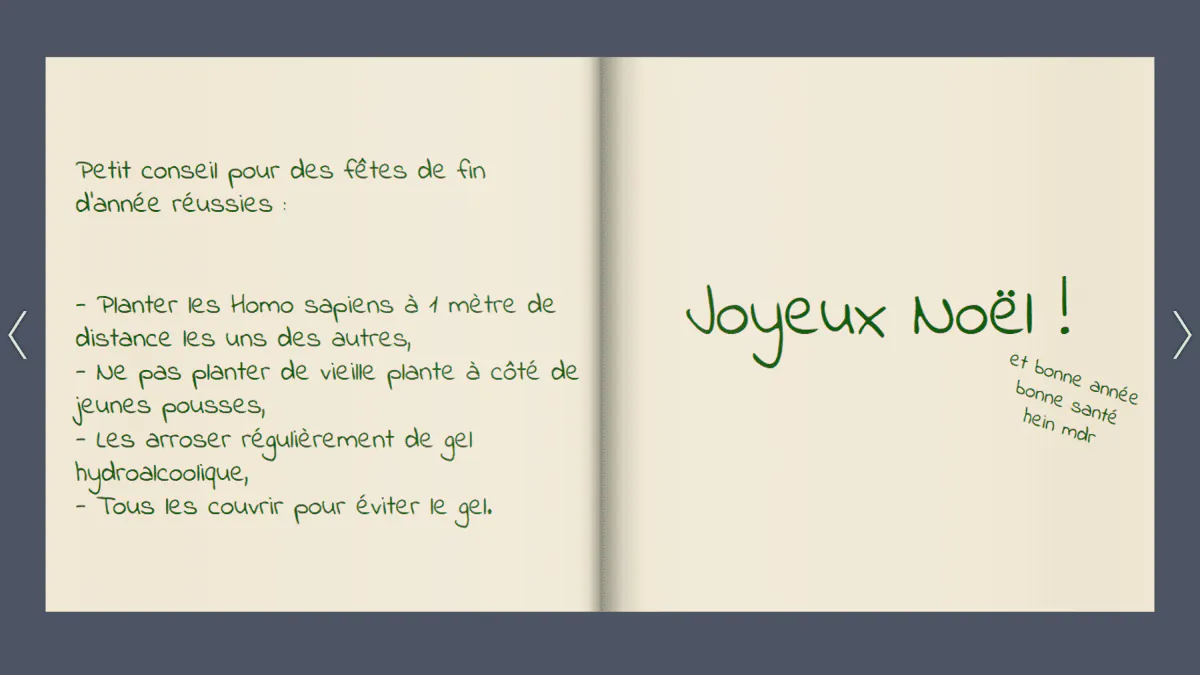 Petit conseil pour des fêtes de fin
d'année réussies :
- Planter les Homo sapiens à 1 mètre de
distance les uns des autres,
- Ne pas planter de vieille plante à côté de
jeunes pousses,
- Les arroser régulièrement de gel
hydroalcoolique,
- Tous les couvrir pour éviter le gel.
Joyeux Noël !
et bonne année
bonne santé
hein mdr